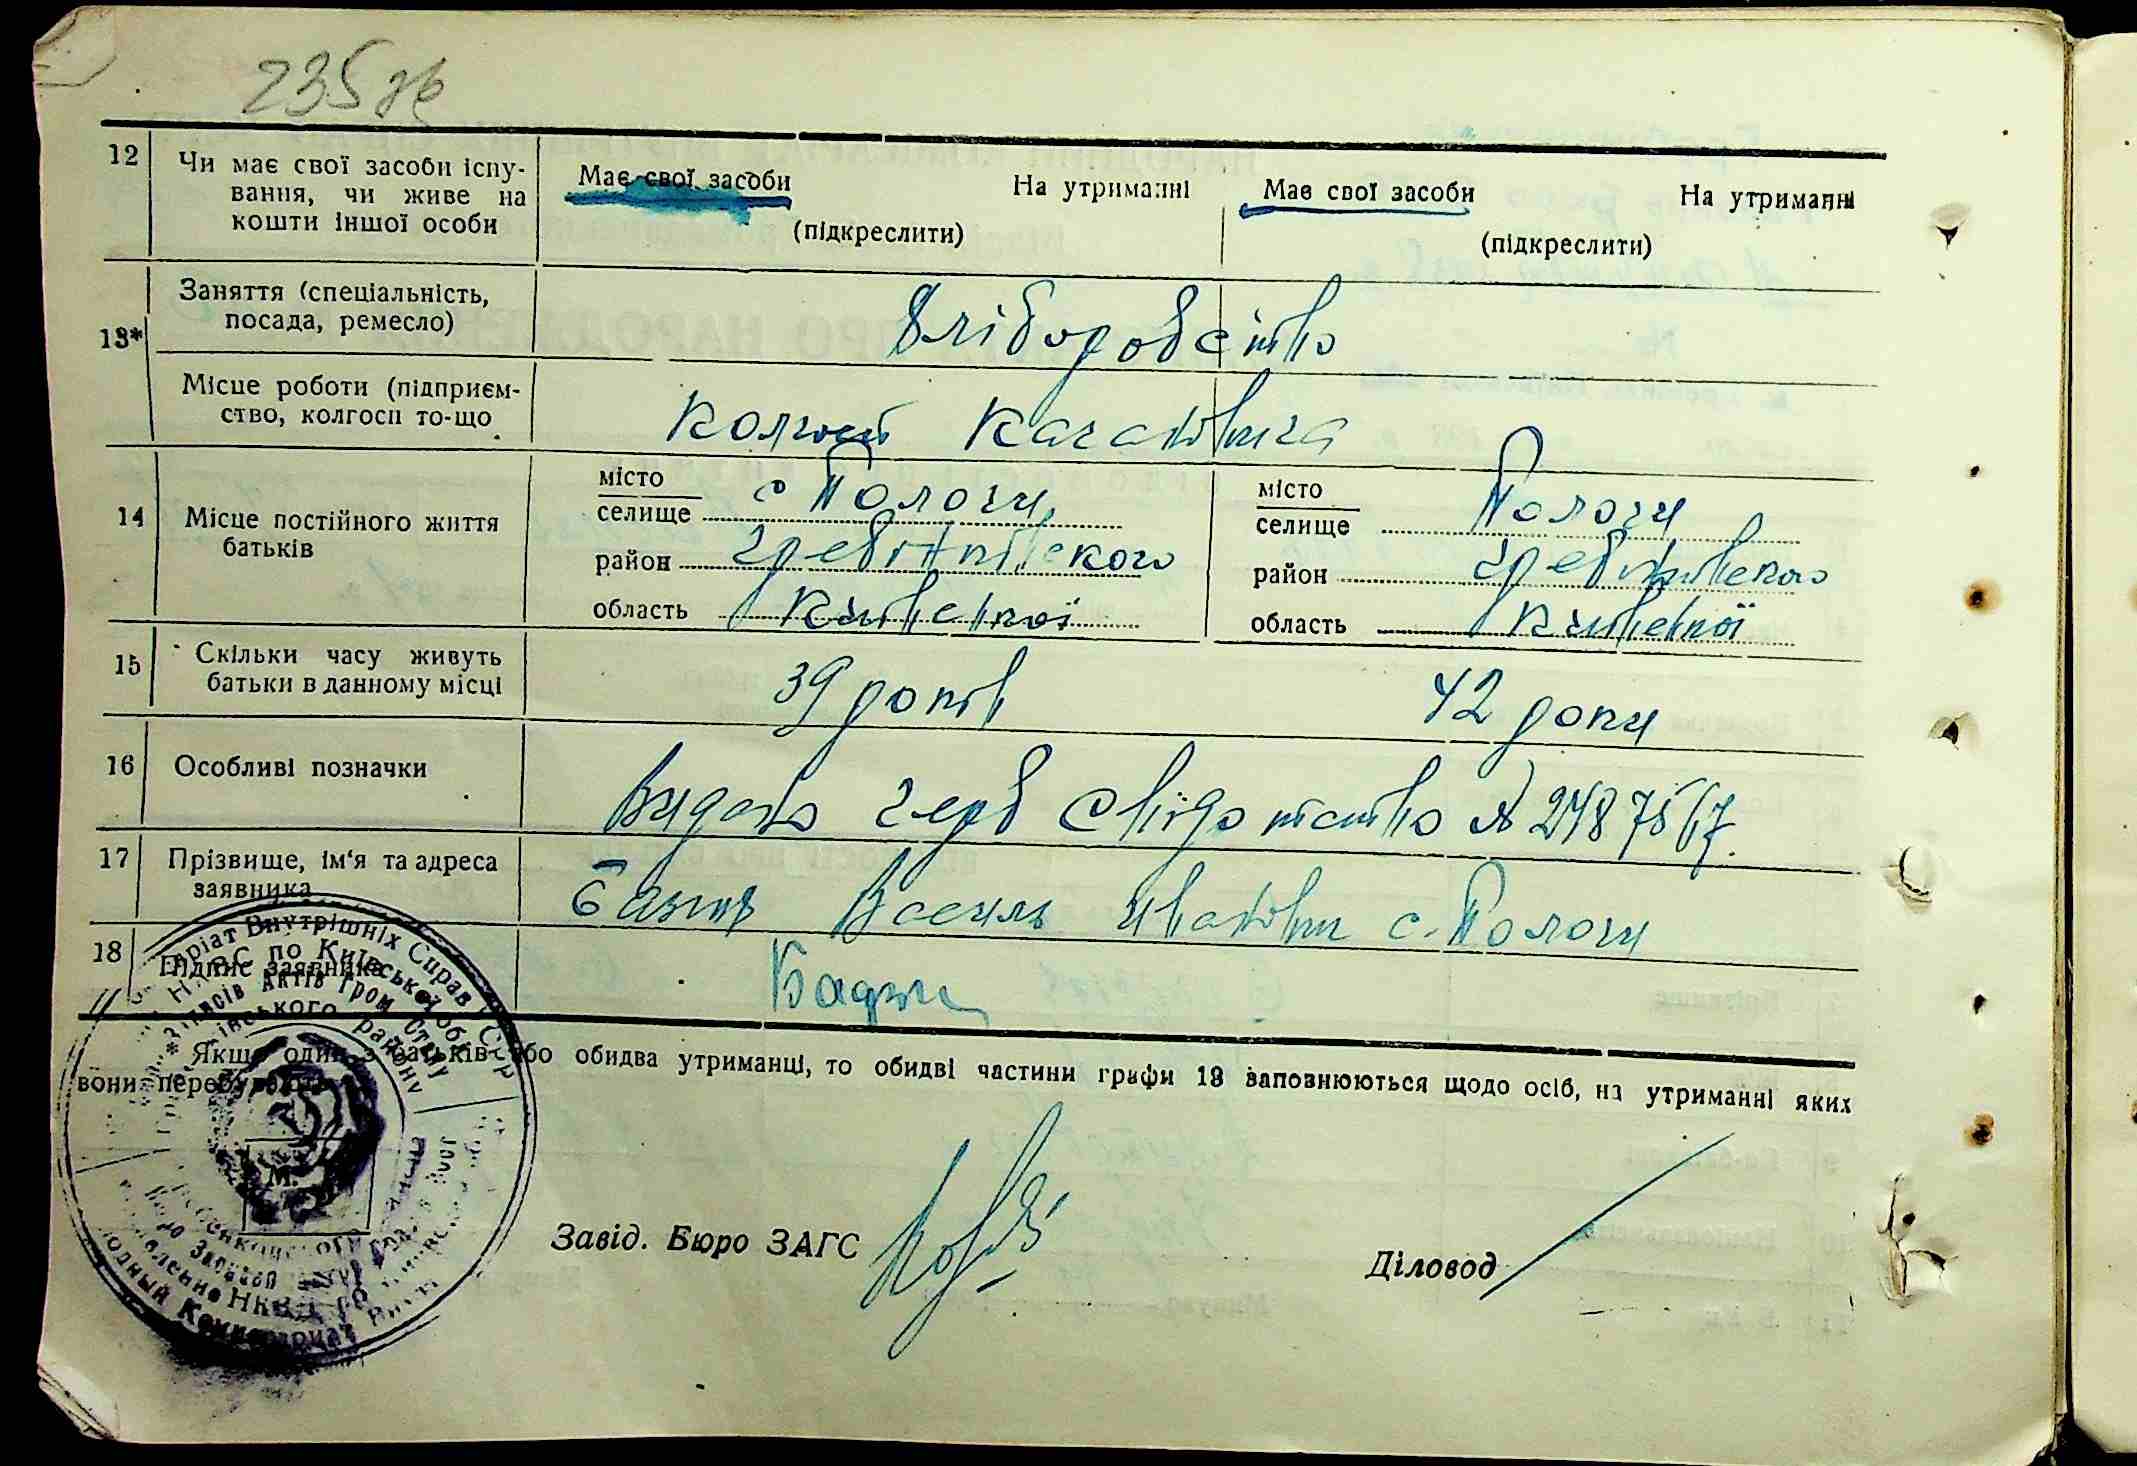 235
12 Чи має свої засоби існу-
вання, чи живе на
кошти іншої особи
Має свої засоби На утриманні Має свої засоби На утриманні
(підкреслити) (підкреслити)
13* Заняття (спеціальність,
посада, ремесло)
Хліборобство
Місце роботи (підприєм-
ство, колгосп то-що
Колгосп Кагановича
14 Місце постійного життя
батьків
місто
селище с Пологи
район Гребінківського
область Київської
місто
селище Пологи
район Гребінківського
область Київської
15 Скільки часу живуть
батьки в данному місці
39 років 42 роки
16 Особливі позначки
Видано герб свідотство №
17 Прізвище, ім'я та адреса
заявника
Василь Іванович с. Пологи
18 Підпис заявника
Якщо один з батьків або обидва утриманці, то обидві частини графи 13 заповнюються щодо осіб, на утриманні яких
вони перебувають
Завід. Бюро ЗАГС
Діловод
Внутрішніх Справ
НКВС по Київській обл
Актів Гром Стану
району
М.